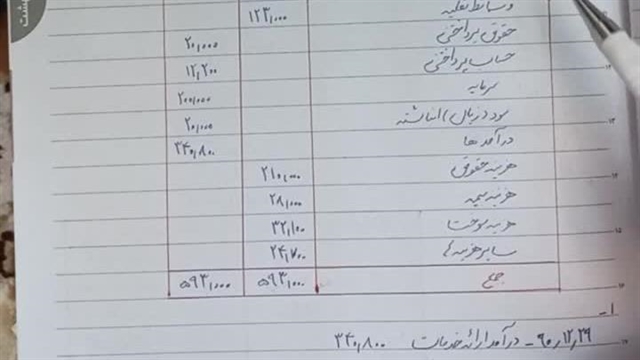 وسائط نقلیه ۱۲۳,۰۰۰
حقوق پرداختنی ۲۰,۰۰۰
حساب پرداختنی ۱۲,۲۰۰
سرمایه ۲۰۰,۰۰۰
سود (زیان) انباشته ۲۰,۰۰۰
درآمد ها ۳۴۰,۸۰۰
هزینه حقوق ۲۱۰,۰۰۰
هزینه بیمه ۲۸,۰۰۰
هزینه سوخت ۳۲,۱۰۰
سایر هزینه ها ۲۴,۷۰۰
جمع ۵۹۳,۰۰۰ ۵۹۳,۰۰۰
۱-
۹۰,۱۲,۲۹ - درآمد ارائه خدمات ۳۴۰,۸۰۰